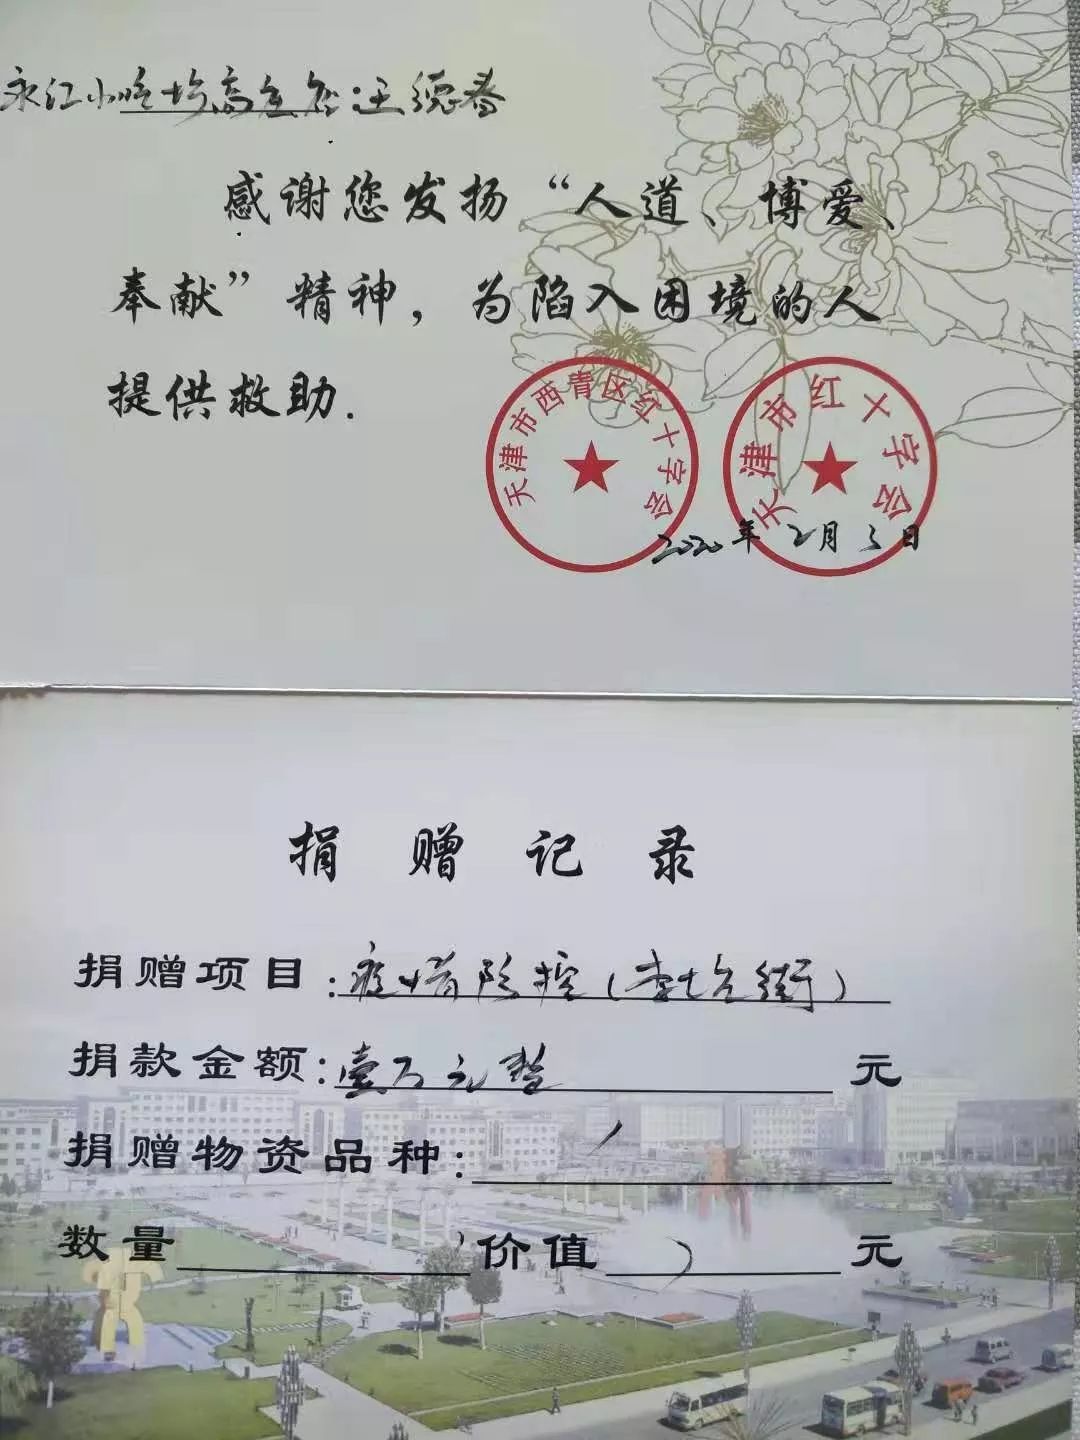 永江小 王德春
感谢您发扬“人道、博爱、
奉献”精神，为陷入困境的人
提供救助.
天津市西青区红十字会
天津市红十字会
2020年2月3日
捐赠记录
捐赠项目:疫情防控(李七庄街)
捐款金额:壹万元整 元
捐赠物资品种: /
数量 价值 元